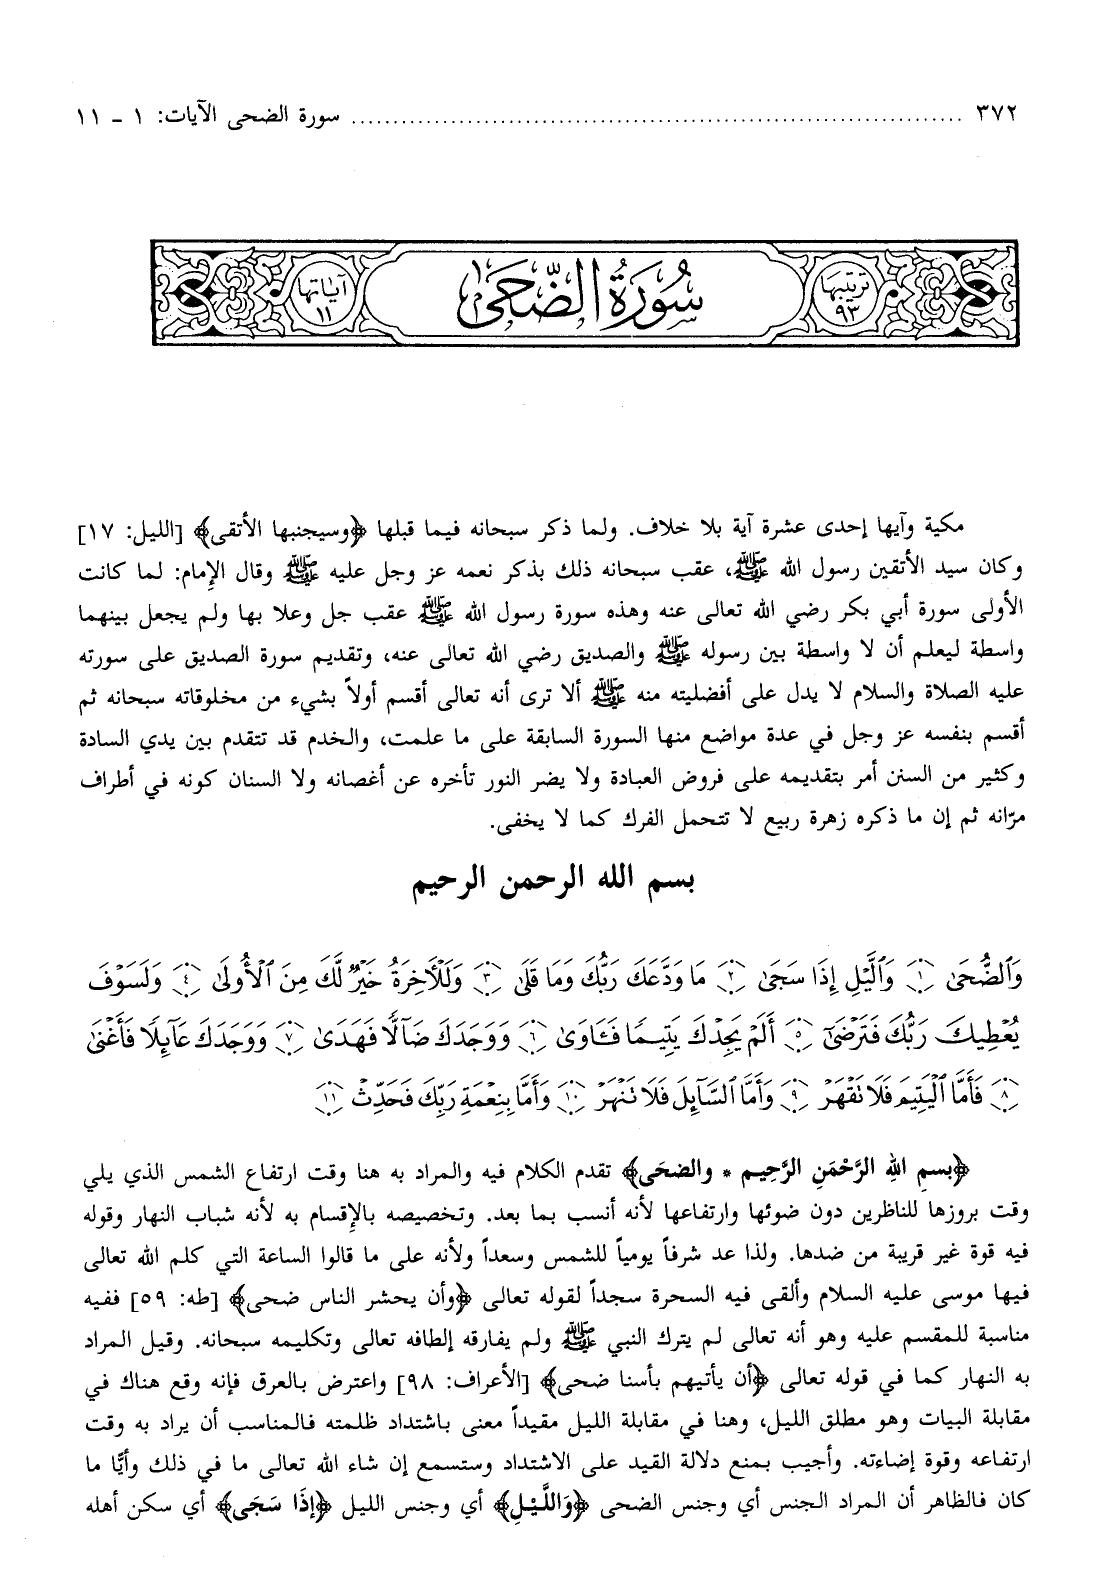 ٣٧٢ ........................................................................ سورة الضحى الآيات: ١ - ١١
ترتيبها ٩٣ سُورَةُ الضُّحَىٰ آياتها ١١
مكية وآيها إحدى عشرة آية بلا خلاف. ولما ذكر سبحانه فيما قبلها ﴿وسيجنبها الأتقى﴾ [الليل: ١٧]
وكان سيد الأتقين رسول الله ﷺ، عقب سبحانه ذلك بذكر نعمه عز وجل عليه ﷺ وقال الإمام: لما كانت
الأولى سورة أبي بكر رضي الله تعالى عنه وهذه سورة رسول الله ﷺ عقب جل وعلا بها ولم يجعل بينهما
واسطة ليعلم أن لا واسطة بين رسوله ﷺ والصديق رضي الله تعالى عنه، وتقديم سورة الصديق على سورته
عليه الصلاة والسلام لا يدل على أفضليته منه ﷺ ألا ترى أنه تعالى أقسم أولاً بشيء من مخلوقاته سبحانه ثم
أقسم بنفسه عز وجل في عدة مواضع منها السورة السابقة على ما علمت، والخدم قد تتقدم بين يدي السادة
وكثير من السنن أمر بتقديمه على فروض العبادة ولا يضر النور تأخره عن أغصانه ولا السنان كونه في أطراف
مرّانه ثم إن ما ذكره زهرة ربيع لا تتحمل الفرك كما لا يخفى.
بسم الله الرحمن الرحيم
وَٱلضُّحَىٰ ﴿١﴾ وَٱلَّيْلِ إِذَا سَجَىٰ ﴿٢﴾ مَا وَدَّعَكَ رَبُّكَ وَمَا قَلَىٰ ﴿٣﴾ وَلَلْأَخِرَةُ خَيْرٌ لَّكَ مِنَ ٱلْأُولَىٰ ﴿٤﴾ وَلَسَوْفَ
يُعْطِيكَ رَبُّكَ فَتَرْضَىٰٓ ﴿٥﴾ أَلَمْ يَجِدْكَ يَتِيمًا فَـَٔاوَىٰ ﴿٦﴾ وَوَجَدَكَ ضَآلًّا فَهَدَىٰ ﴿٧﴾ وَوَجَدَكَ عَآئِلًا فَأَغْنَىٰ
﴿٨﴾ فَأَمَّا ٱلْيَتِيمَ فَلَا تَقْهَرْ ﴿٩﴾ وَأَمَّا ٱلسَّآئِلَ فَلَا تَنْهَرْ ﴿١٠﴾ وَأَمَّا بِنِعْمَةِ رَبِّكَ فَحَدِّثْ ﴿١١﴾
﴿بسمِ اللهِ الرَّحْمَنِ الرَّحِيم * والضحَى﴾ تقدم الكلام فيه والمراد به هنا وقت ارتفاع الشمس الذي يلي
وقت بروزها للناظرين دون ضوئها وارتفاعها لأنه أنسب بما بعد. وتخصيصه بالإقسام به لأنه شباب النهار وقوله
فيه قوة غير قريبة من ضدها. ولذا عد شرفاً يومياً للشمس وسعداً ولأنه على ما قالوا الساعة التي كلم الله تعالى
فيها موسى عليه السلام وألقى فيه السحرة سجداً لقوله تعالى ﴿وأن يحشر الناس ضحى﴾ [طه: ٥٩] ففيه
مناسبة للمقسم عليه وهو أنه تعالى لم يترك النبي ﷺ ولم يفارقه إلطافه تعالى وتكليمه سبحانه. وقيل المراد
به النهار كما في قوله تعالى ﴿أن يأتيهم بأسنا ضحى﴾ [الأعراف: ٩٨] واعترض بالعرق فإنه وقع هناك في
مقابلة البيات وهو مطلق الليل، وهنا في مقابلة الليل مقيداً معنى باشتداد ظلمته فالمناسب أن يراد به وقت
ارتفاعه وقوة إضاءته. وأجيب بمنع دلالة القيد على الاشتداد وستسمع إن شاء الله تعالى ما في ذلك وأيًّا ما
كان فالظاهر أن المراد الجنس أي وجنس الضحى ﴿وَاللَّيْلِ﴾ أي وجنس الليل ﴿إذَا سَجَى﴾ أي سكن أهله